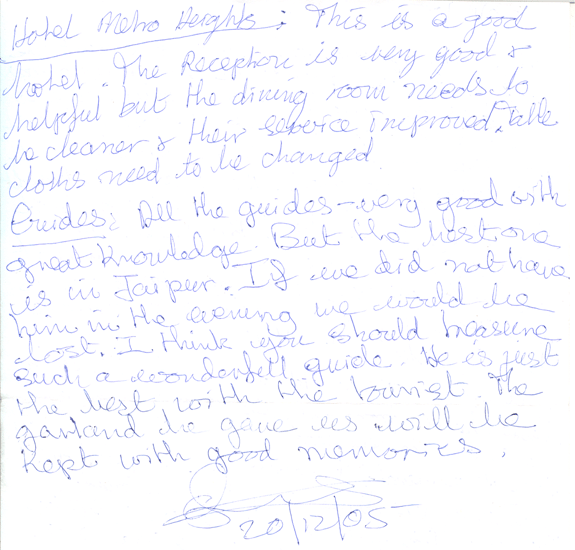 Hotel Metro Heights: This is a good
hotel. The Reception is very good &
helpful but the dining room needs to
be cleaner & their service improved. Table
cloths need to be changed
Guides: All the guides - very good with
great knowledge. But the best one
is in Jaipur. If we did not have
him in the evening we would be
lost. I think you should treasure
such a wonderfull guide. He is just
the best with the tourist. The
garland he gave us will be
kept with good memories.
20/12/05